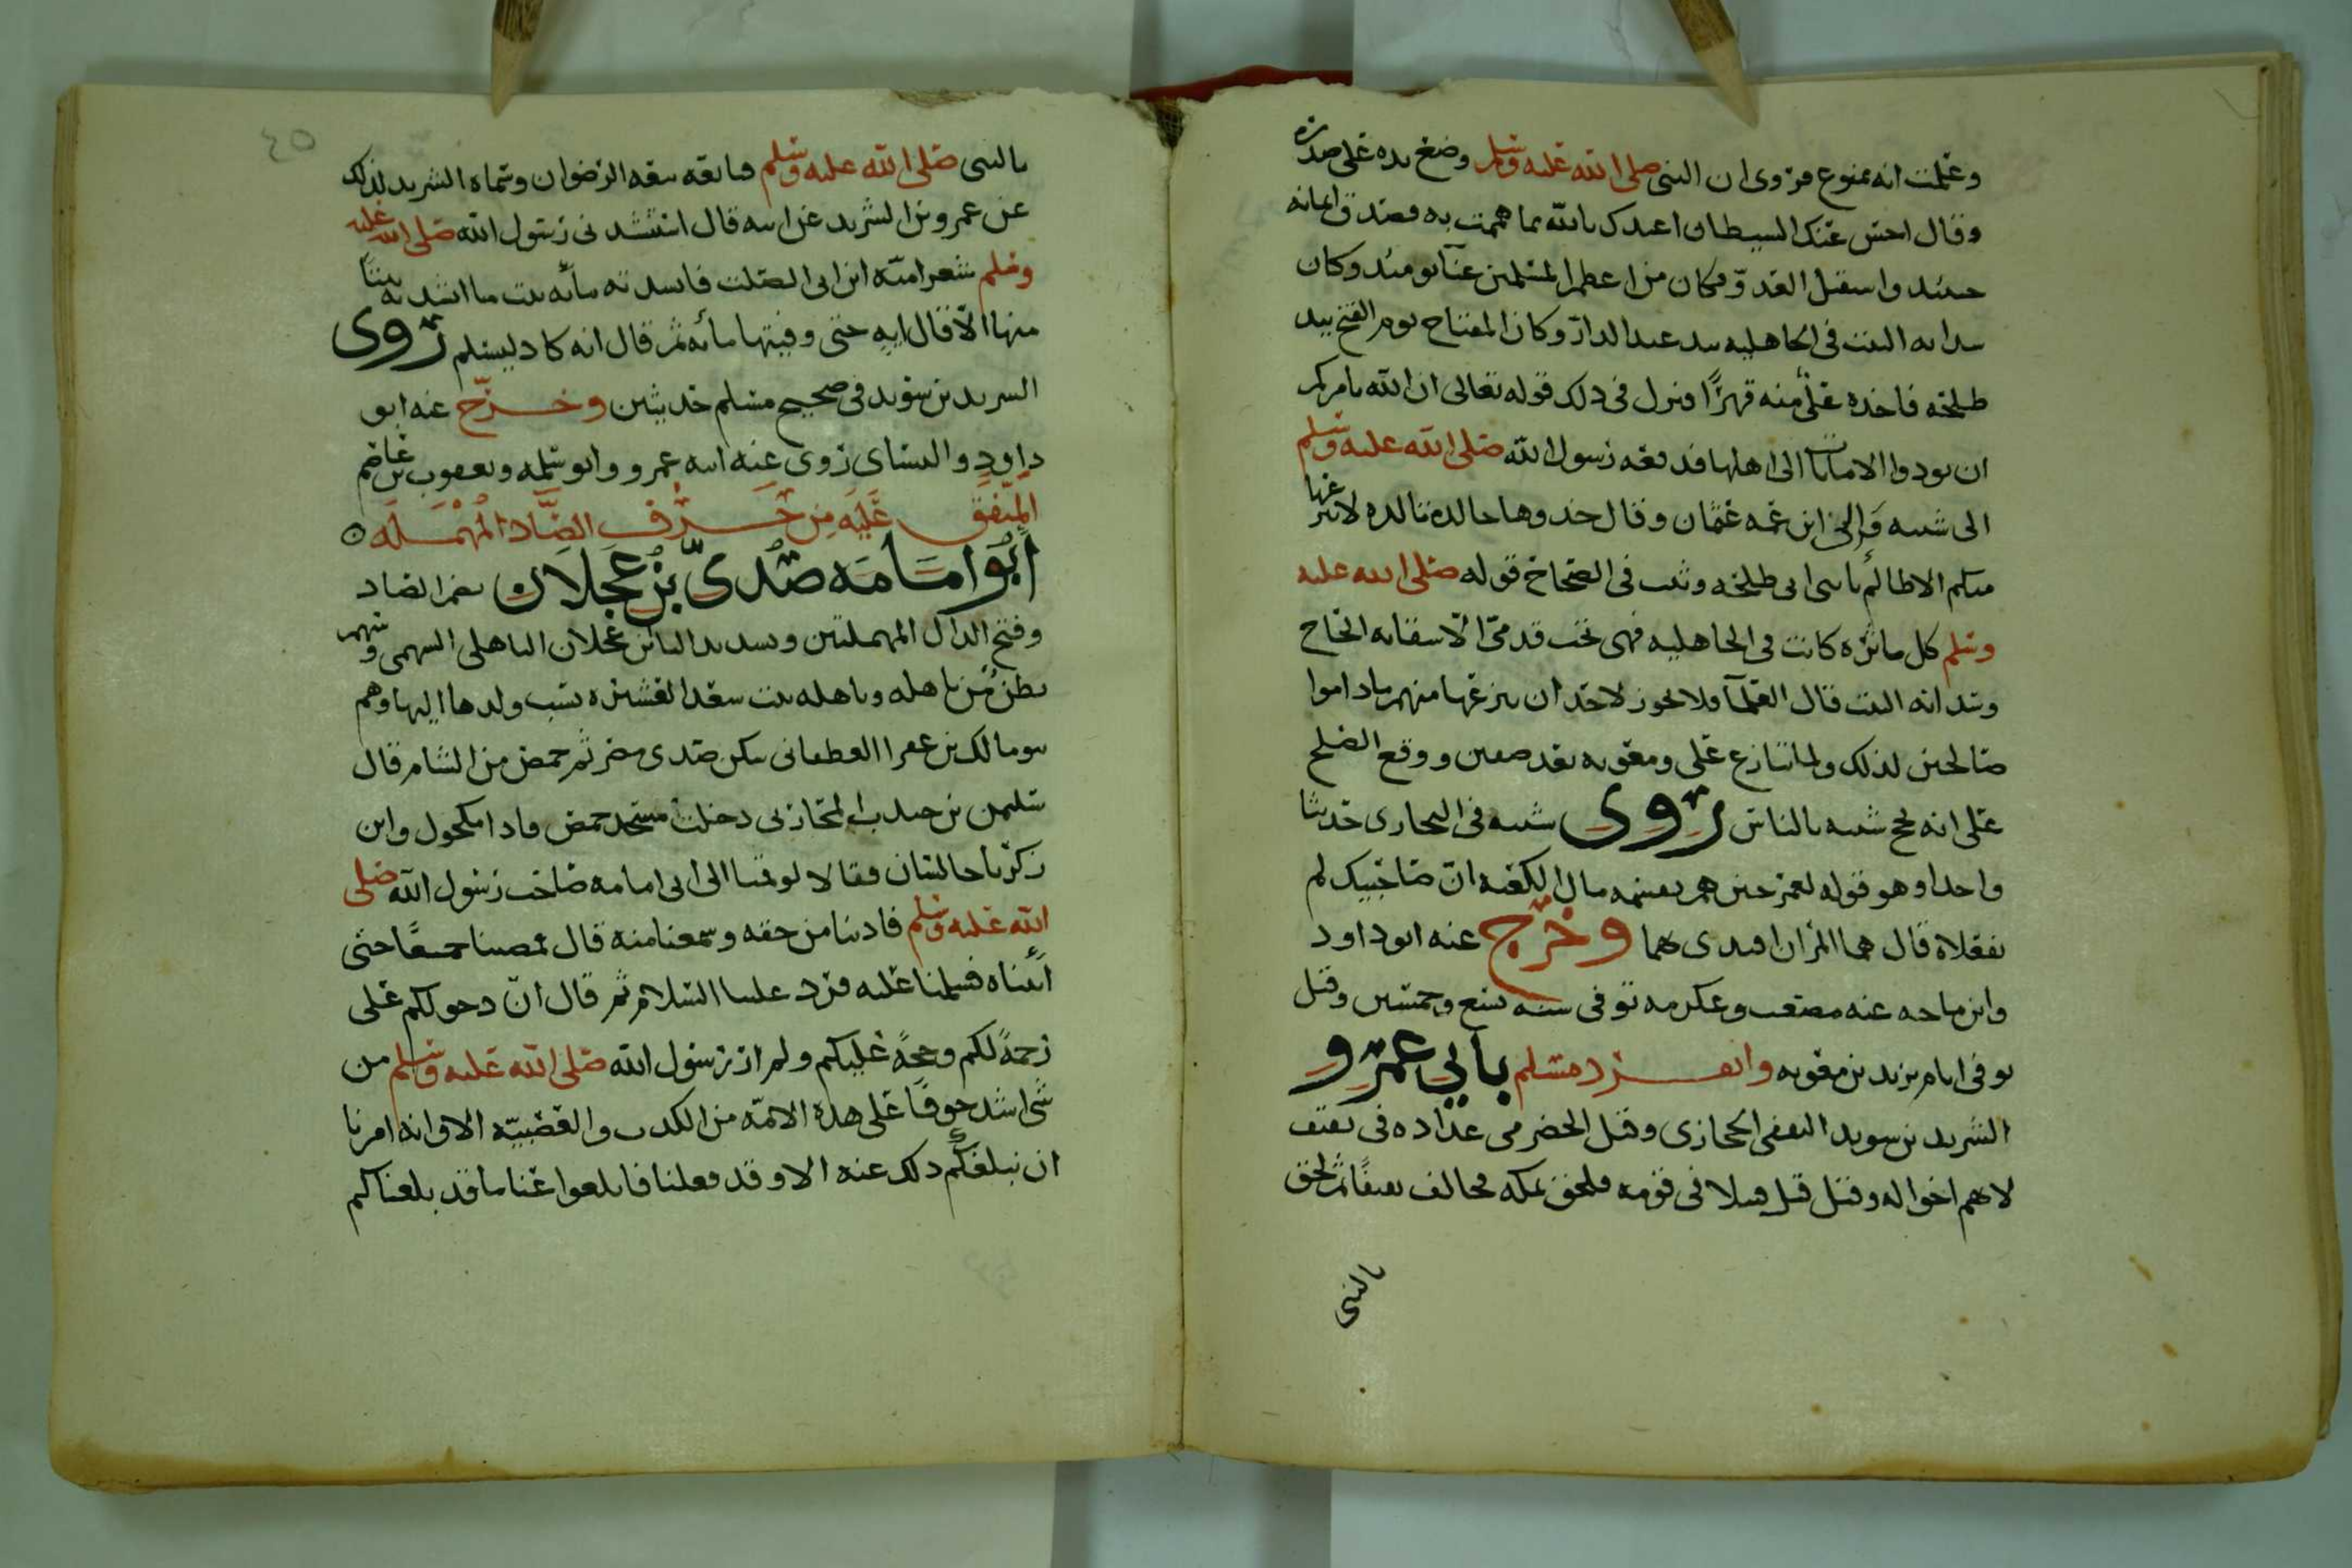 وعلمت انه ممنوع فروى ان النبى صلى الله عليه وسلم وضع يده على صدره
وقال اخس عنك الشيطان اعيذك بالله مما هممت به فصدق ايمانه
حينئذ واستقبل العدو فكان من اعظم المسلمين عنآ يومئذ وكان
سدانه البيت فى الجاهليه بيد عبد الدار وكان المفتاح يوم الفتح بيد
طلحه فاخذه على منه قهرًا فنزل فى ذلك قوله تعالى ان الله يامركم
ان تودوا الامانات الى اهلها فدفعه رسول الله صلى الله عليه وسلم
الى شيبه وَالى ابن عمه عثمان وقال خذوها خالدة تالده لا ينزعها
منكم الا ظالم يا بنى ابى طلحه وثبت فى الصحاح قوله صلى الله عليه
وسلم كل ماثره كانت فى الجاهليه فهى تحت قدمىّ الا سقايه الحاج
وسدانه البيت قال العلمآ ولا يجوز لاحد ان ينزعها منهم ما داموا
صالحين لذلك ولما تنازع على ومعويه بعد صفين ووقع الصلح
على انه يحج شيبه بالناس روى شيبه فى البخارى حديثا
واحدا وهو قوله لعمر حين هم بقسمه مال الكعبه انّ صاحبيك لم
يفعلاه قال هما المرآن اقتدى بهما وخرّج عنه ابو داود
وابن ماجه عنه مصعب وعكرمه توفى سنه تسع وخمسين وقيل
توفى ايام يزيد بن معويه وانفرد مسلم بأبي عمرو
الشريد بن سويد الثقفى الحجازى وقيل الحضرمى عداده فى ثقيف
لانهم اخواله وقيل قتل قتيلا فى قومه فلحق بمكه فحالف ثقيفًا ثم لحق
بالنبى
٤٥
بالنبى صلى الله عليه وسلم فبايعه بيعه الرضوان وسماه الشريد لذلك
عن عمرو بن الشريد عن ابيه قال استنشدنى رسول الله صلى الله عليه
وسلم شعر اميّه ابن ابى الصلت فانشدته مأيه بيت ما انشدته بيتًا
منها الا قال ايهِ حتى وفيتها مأيه ثم قال انه كاد ليسلم روى
الشريد بن سويد فى صحيح مسلم حديثين وخرّج عنه ابو
داود والنساى روى عنه ابنه عمرو وابو سلمه ويعقوب بن عاصم
المتّفق عَلَيْه مِن حَرْف الصَّاد المُهْمَلَه
أبُو امَامَه صُدىّ بن عَجلَان بضم الصاد
وفتح الدال المهملتين وتشديد اليا بن عجلان الباهلى السهمى وسهم
بطن من باهله وباهله بنت سعد العشيره نسب ولدها اليها وهم
بنو مالك بن عفرا الغطفانى سكن صدى مصر ثم حمص من الشام قال
سليمن بن حبيب المحاربى دخلت مسجد حمص فاذا مكحول وابن
زكريا جالسان فقالا لو قمنا الى ابى امامه صاحب رسول الله صلى
الله عليه وسلم فادينا من حقه وسمعنا منه قال فمضينا جميعًا حتى
أتيناه فسلمنا عليه فرد علينا السلام ثم قال انّ دخولكم على
رحمةً لكم وحجةً عليكم ولم ار رسول الله صلى الله عليه وسلم من
شى اشد خوفًا على هذه الامّه من الكذب والعصبيّه الا وانه امرنا
ان نبلغكم ذلك عنه الا وقد فعلنا فابلغوا عنا ما قد بلغناكم